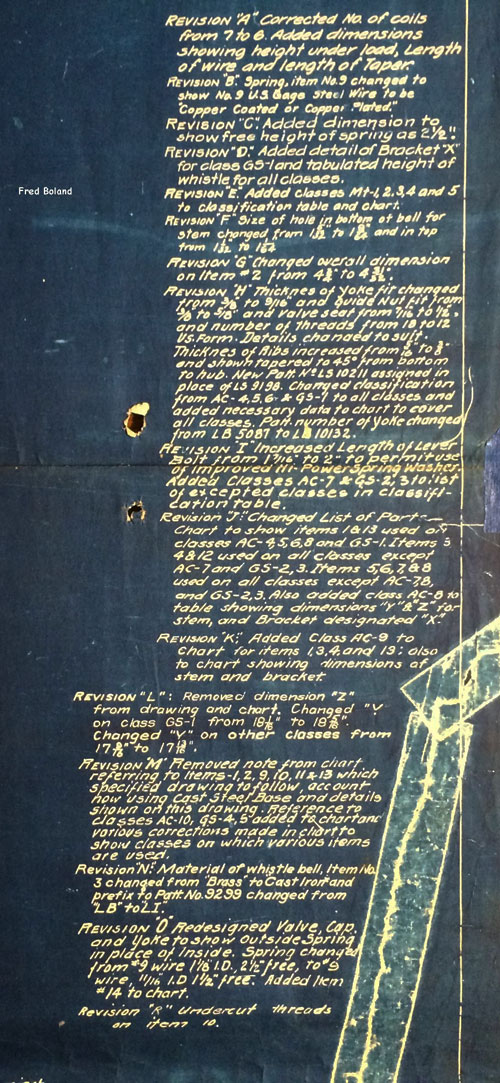 REVISION "A" CORRECTED NO. OF COILS
FROM 7 TO 6. ADDED DIMENSIONS
SHOWING HEIGHT UNDER LOAD, LENGTH
OF WIRE AND LENGTH OF TAPER.
REVISION "B". SPRING, ITEM NO.9 CHANGED TO
SHOW NO.9 U.S. GAGE STEEL WIRE TO BE
"COPPER COATED OR COPPER PLATED."
REVISION "C". ADDED DIMENSION TO
SHOW FREE HEIGHT OF SPRING AS 2½".
REVISION "D". ADDED DETAIL OF BRACKET "X"
FOR CLASS GS-1 AND TABULATED HEIGHT OF
WHISTLE FOR ALL CLASSES.
Fred Boland
REVISION "E. ADDED CLASSES MT-1,2,3,4 AND 5
TO CLASSIFICATION TABLE AND CHART.
REVISION "F" SIZE OF HOLE IN BOTTOM OF BELL FOR
STEM CHANGED FROM TO AND IN TOP
FROM TO
REVISION "G" CHANGED OVERALL DIMENSION
ON ITEM #2 FROM TO
REVISION "H" THICKNES OF YOKE FIT CHANGED
FROM TO 9/16" AND GUIDE NUT FIT FROM
TO 5/8" AND VALVE SEAT FROM 7/16 TO 1/2",
AND NUMBER OF THREADS FROM 18 TO 12
U.S. FORM. DETAILS CHANGED TO SUIT.
THICKNES OF RIBS INCREASED FROM TO
AND SHOWN TAPERED TO 45° FROM BOTTOM
TO HUB. NEW PATT. NO LS 10211 ASSIGNED IN
PLACE OF LS 9198. CHANGED CLASSIFICATION
FROM AC-4,5,6 & GS-1 TO ALL CLASSES AND
ADDED NECESSARY DATA TO CHART TO COVER
ALL CLASSES. PATT. NUMBER OF YOKE CHANGED
FROM LB 5087 TO LB 10132.
REVISION "I" INCREASED LENGTH OF LEVER
BOLT FROM TO TO PERMIT USE
OF IMPROVED HI-POWER SPRING WASHER.
ADDED CLASSES AC-7 & GS-2,3 TO LIST
OF EXCEPTED CLASSES IN CLASSIFI-
CATION TABLE.
REVISION "J". CHANGED LIST OF PART
CHART TO SHOW ITEMS 1 & 13 USED ON
CLASSES AC-4,5,6,8 AND GS-1. ITEMS 3
4 & 12 USED ON ALL CLASSES EXCEPT
AC-7 AND GS-2,3. ITEMS 5,6,7,& 8
USED ON ALL CLASSES EXCEPT AC-7,8,
AND GS-2,3. ALSO ADDED CLASS AC-8 TO
TABLE SHOWING DIMENSIONS "Y" & "Z" FOR
STEM, AND BRACKET DESIGNATED "X".
REVISION "K". ADDED CLASS AC-9 TO
CHART FOR ITEMS 1,3,4, AND 13; ALSO
TO CHART SHOWING DIMENSIONS OF
STEM AND BRACKET.
REVISION "L": REMOVED DIMENSION "Z"
FROM DRAWING AND CHART. CHANGED "Y
ON CLASS GS-1 FROM TO
CHANGED "Y" ON OTHER CLASSES FROM
TO
REVISION "M" REMOVED NOTE FROM CHART
REFERRING TO ITEMS-1, 2, 9, 10, 11 & 13 WHICH
SPECIFIED DRAWING TO FOLLOW, ACCOUNT
NOW USING CAST STEEL BASE AND DETAILS
SHOWN ON THIS DRAWING. REFERENCE TO
CLASSES AC-10, GS-4, 5 ADDED TO CHART AND
VARIOUS CORRECTIONS MADE IN CHART TO
SHOW CLASSES ON WHICH VARIOUS ITEMS
ARE USED.
REVISION "N". MATERIAL OF WHISTLE BELL, ITEM NO.
3 CHANGED FROM "BRASS" TO CAST IRON" AND
PREFIX TO PATT. NO. 9299 CHANGED FROM
"LB" TO LI.
REVISION "O" REDESIGNED VALVE, CAP,
AND YOKE TO SHOW OUTSIDE SPRING
IN PLACE OF INSIDE. SPRING CHANGED
FROM #9 WIRE 1⅛ I.D. 2½" FREE, TO #9
WIRE, 11/16 I.D 1½" FREE. ADDED ITEM
#14 TO CHART.
REVISION "R" UNDERCUT THREADS
ON ITEM 10.